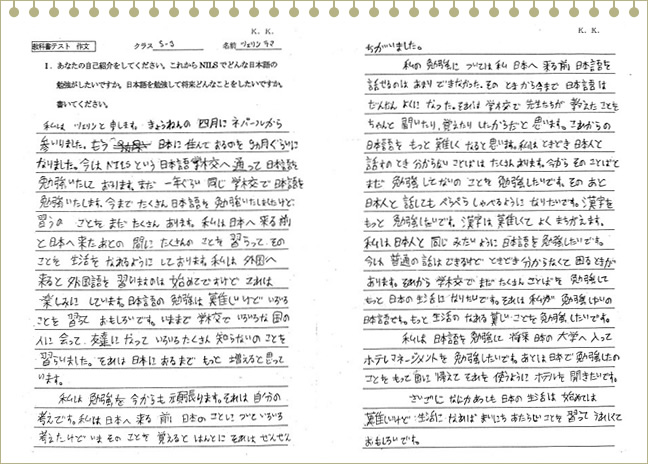 K. K.
教科書テスト 作文 クラス 5-3 名前 ツェリン ラマ
1. あなたの自己紹介をしてください。これからNILSでどんな日本語の
勉強がしたいですか。日本語を勉強して将来どんなことをしたいですか。
書いてください。
私は ツェリンと申します。きょうねんの 四月に ネパールから
参りました。もう 日本に 住んで おるのを 9ヵ月ぐらいに
なりました。今は NILSという 日本語学校へ 通って 日本語を
勉強いたして おります。まだ 一年ぐらい 同じ 学校で 日本語を
勉強いたします。今まで たくさん 日本語を 勉強いたしましたけど
習うの ことを まだ たくさん あります。私は 日本へ 来る 前
と 日本へ 来た あとの 間に たくさんの ことを 習って その
ことを 生活を なれるようにして おります。私は 外国へ
来ると 外国語を 習いますのは 始めてですけど これは
楽しみに しています。日本語の 勉強は 難しいけど いろいろ
ことを 習って おもしろいです。いままで 学校で いろいろな 国の
人に 会って 友達に なって いろいろ たくさん 知らないの ことを
習らいました。それは 日本に おるまで もっと 増えると 思って
います。
私は 勉強を 今からも 頑張ります。それは 自分の
考えです。私は 日本へ 来る 前 日本の ことに ついて いろいろ
考えたけど いま その ことを 覚えると ほんとに それは ぜんぜん
K. K.
ちがいました。
私の 勉強に ついては 私 日本へ 来る 前 日本語を
話せるのは あまり できなかった。その ときから 今まで 日本語は
だんだん よくに なった。それは 学校で 先生たちが 教えた ことを
ちゃんと 聞いたり、覚えたり したからだと 思います。これからの
日本語を もっと 難しく なると 思います。私は ときどき 日本人と
話すの とき 分からない ことばは たくさん あります。今から その ことばと
まだ 勉強 してないの ことを 勉強したいです。その あと
日本人と 話しても ぺらぺら しゃべるように なりたいです。漢字を
もっと 勉強しないです。漢字は 難しくて よく まちがえます。
私は 日本人と 同じ みたいように 日本語を 勉強したいです。
今は 普通の 話は できるけど ときどき 分からなくて 困る ときが
あります。それから 学校で まだ たくさん ことばを 勉強して
もっと 日本の 生活に なりたいです。それは 私が 勉強したいの
日本語です。もっと 生活の なれる ことを 勉強したいです。
私は 日本語を 勉強して 将来 日本の 大学へ 入って
ホテルマネージメントを 勉強したいです。あとは 日本で 勉強したの
ことを もって 国に 帰えて それを 使うように ホテルを 開きたいです。
さいごに なにが あっても 日本の 生活は 始めては
難しいけど 生活に なれば まいにち あたらしい ことを 習って うれしくて
おもしろいです。